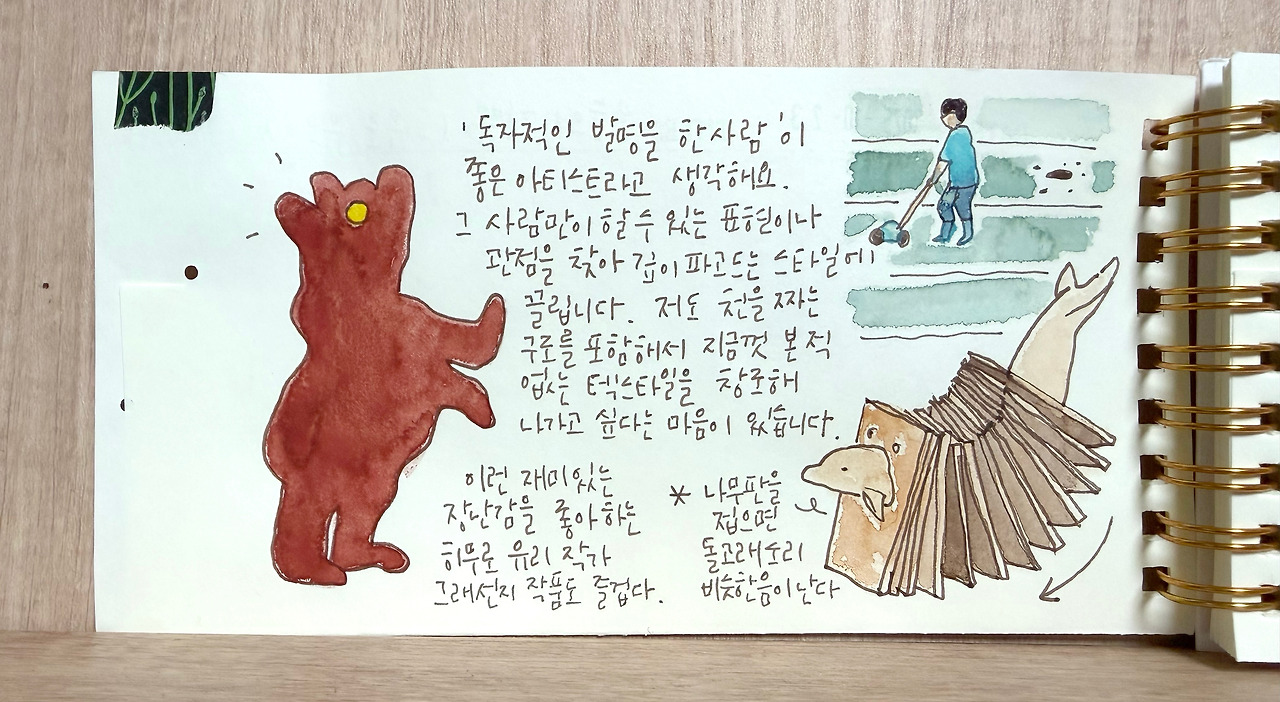 '독자적인 발명을 한 사람'이
좋은 아티스트라고 생각해요.
그 사람만이 할 수 있는 표현이나
관점을 찾아 깊이 파고드는 스타일에
끌립니다. 저도 천을 짜는
구조를 포함해서 지금껏 본 적
없는 텍스타일을 창조해
나가고 싶다는 마음이 있습니다.
이런 재미있는
장난감을 좋아하는
히무로 유리 작가
그래선지 작품도 즐겁다.
* 나무판을
접으면
돌고래소리
비슷한음이난다